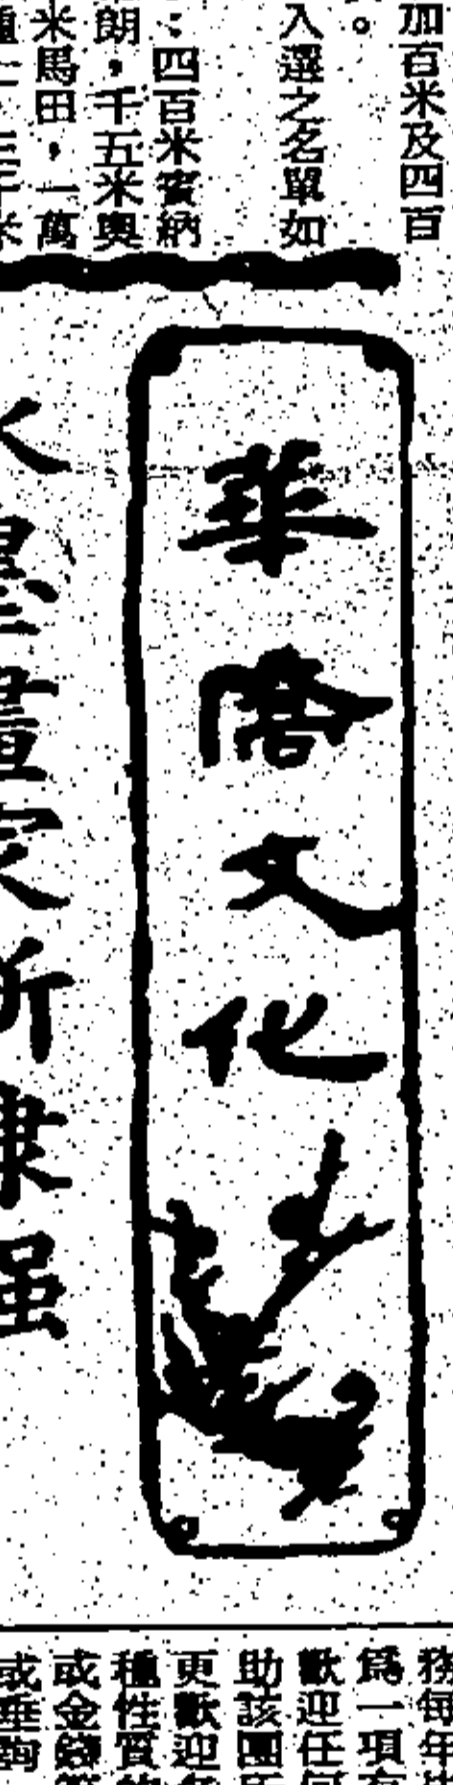 加百米及四百
。
入選之名單如
：四百米賓納
朗，千五米奧
米馬田，一萬
華僑文化
水墨畫家
强
務每年
爲一項
歡迎任何
助該團
更歡迎
種性質
或金錢
或垂詢